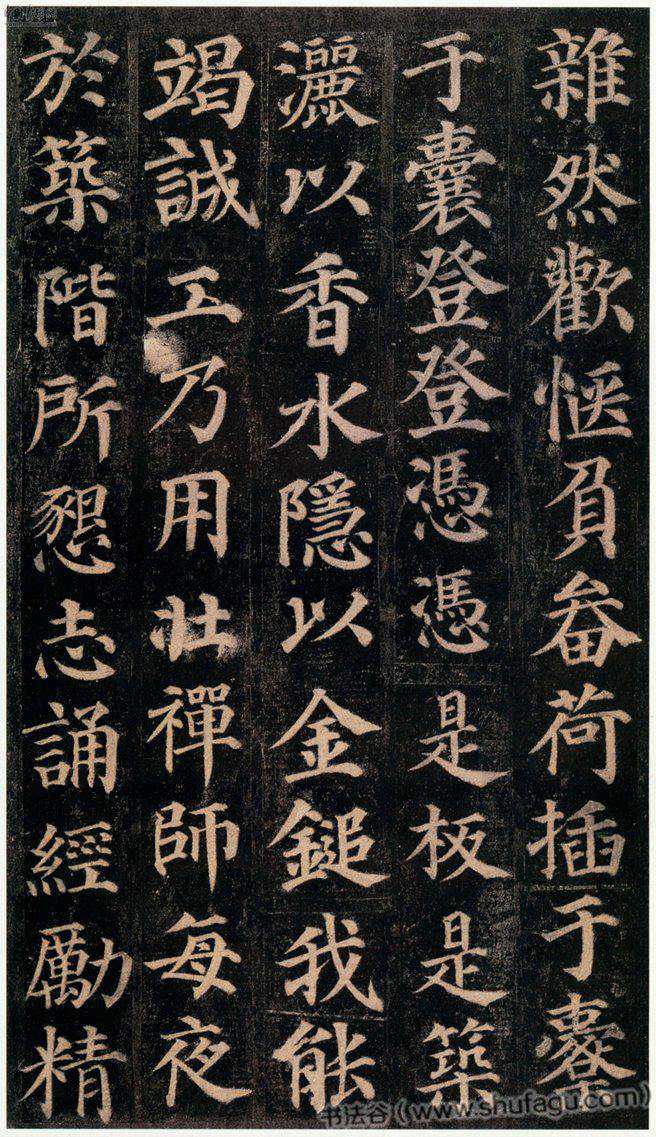 雜然歡惬負畚荷插于橐
于囊登登憑憑是板是築
灑以香水隱以金鎚我能
竭誠工乃用壯禪師每夜
於築階所懇志誦經勵精
书法谷(www.shufagu.com)